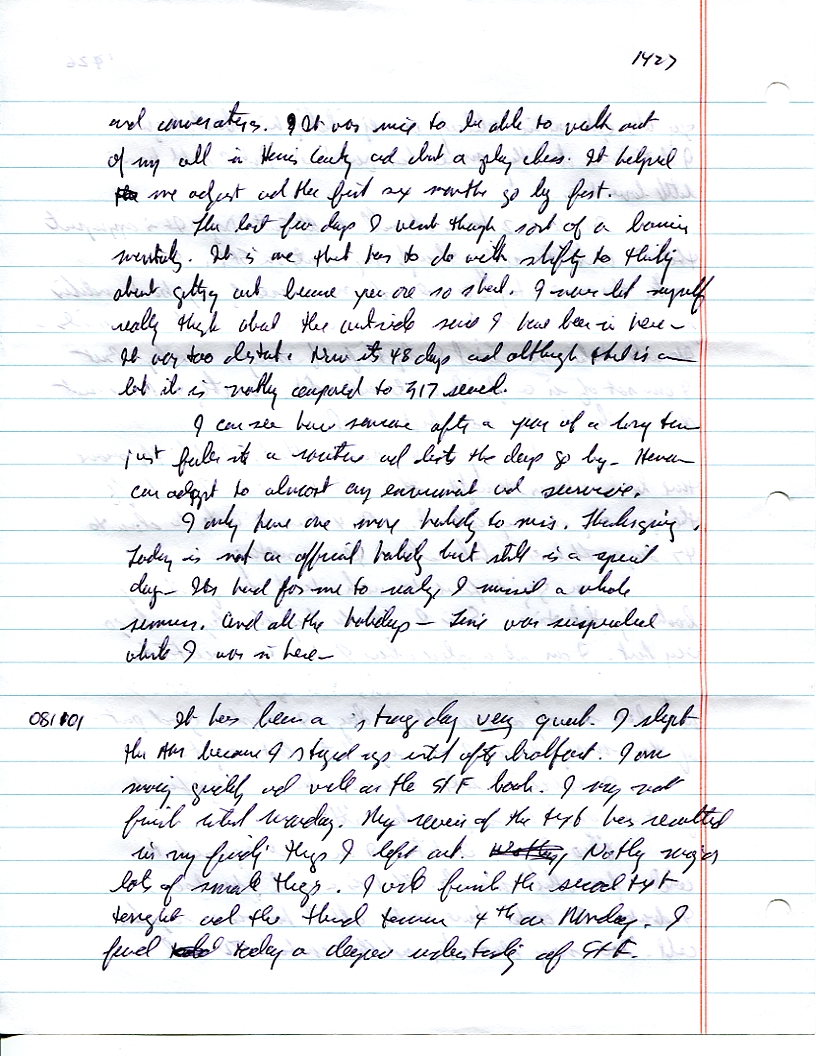 1427
and conversation. It was nice to be able to walk out
of my cell in Harris County and chat a play chess. It helped
me adjust and the first six months go by fast.
The last few days I went through sort of a barrier
mentally. It is one that has to do with shifting to thinking
about getting out because you are so short. I never let myself
really think about the outside since I have been in here -
It was too distant. Now its 48 days and although that is a
lot it is nothing compared to 317 served.
I can see how someone after a year of a long term
just fades into a routine and lets the days go by - Human
can adapt to almost any environment and survive.
I only have one more holiday to miss. Thanksgiving.
Today is not an official holiday but still is a special
day - Its hard for me to realize I missed a whole
summer. And all the holidays - Time was suspended
while I was in here -
It has been a strange day very quiet. I slept
the AM because I stayed up until after breakfast. I am
moving quickly and well on the book. I may not
finish until Monday. My review of the text has resulted
in my finding things I left out. Nothing major
lots of small things. I will finish the second text
tonight and the third tomorrow 4th on Monday. I
find today a deeper understanding of